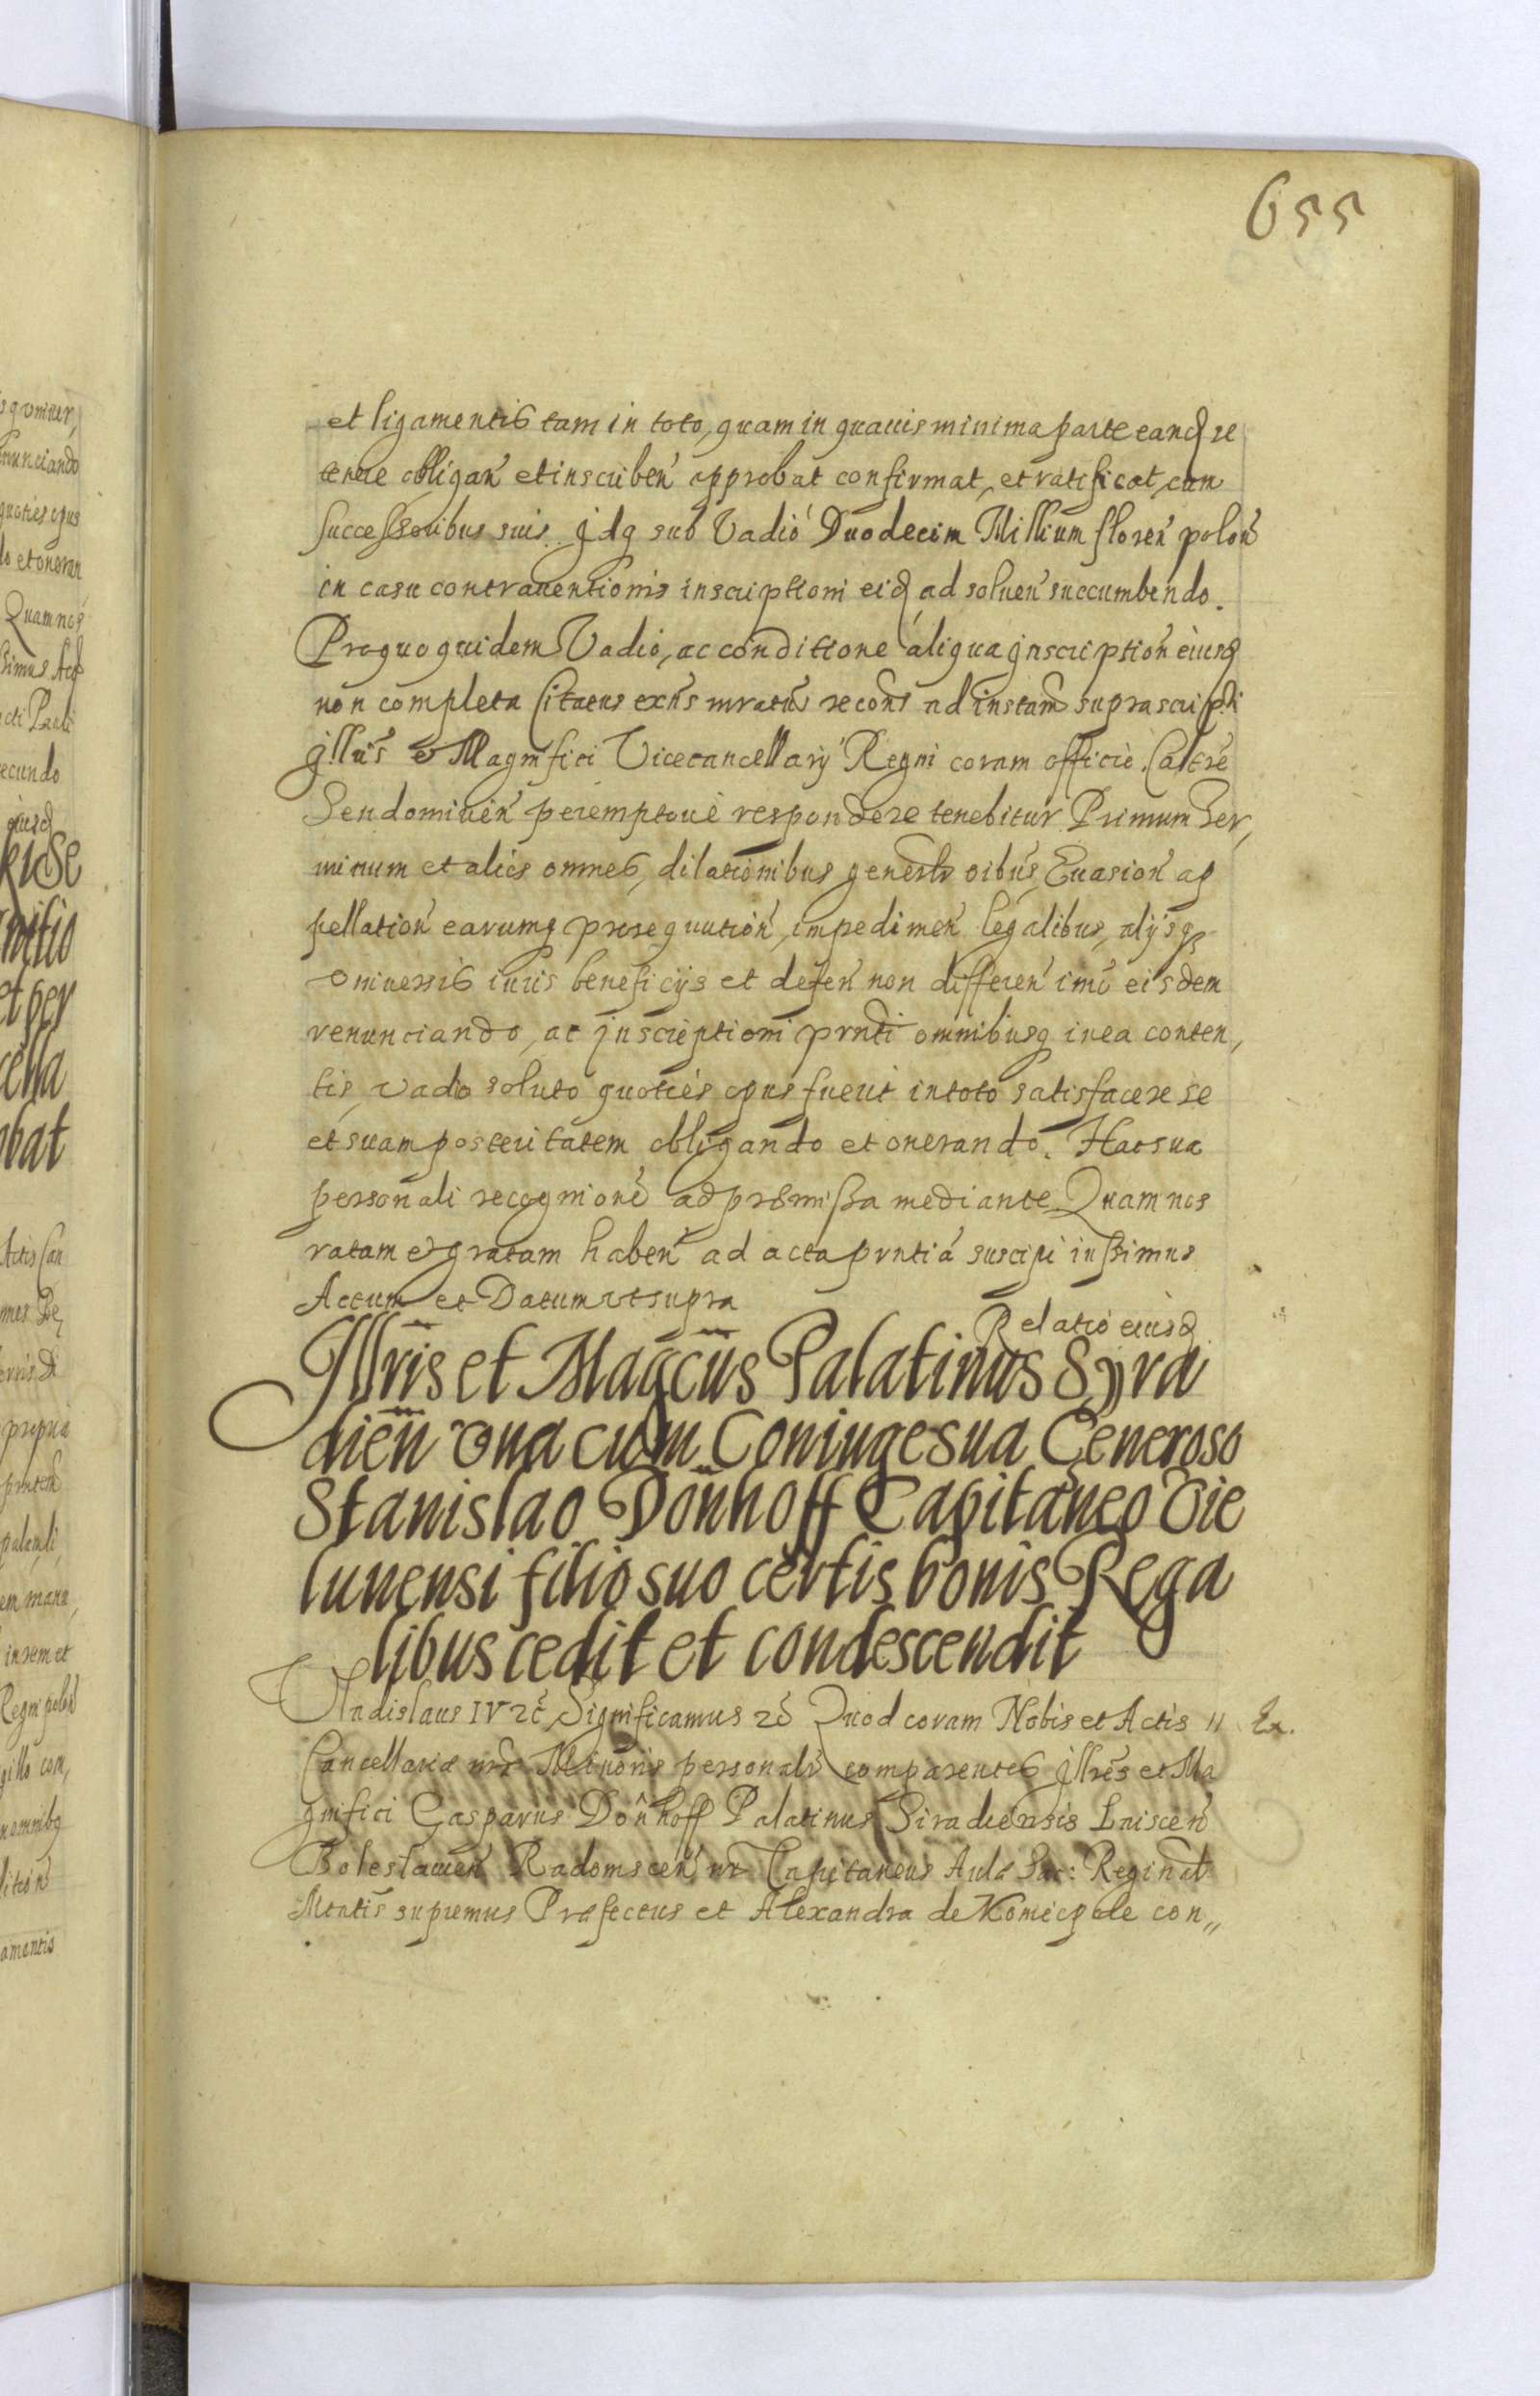 655
et ligamentis tam in toto, quam in quauis minima parte eandq se
tenere obligan̄ et inscriben̄ approbat confirmat, et ratificat, cum
successoribus suis. Idq sub Vadio Duodecim Millium floren̄ polon̄
in casu contrauentionis inscriptioni eidq ad soluen̄ succumbendo.
Pro quo quidem Vadio, ac conditione aliqua inscription̄ eiusdq
non completa Citatus exn̄s iuratus recon̄s ad instan̄ suprascripti
Illris et Magnifici Vicecancellarij Regni coram officio Caltrē
Sendomirien̄ peremptoriè respondere tenebitur Primum Ter,
minum et alios omnes, dilationibus generlr̄ oibus, Euasion̄ ap
pellation̄ earumq prosequution̄, impedimen̄ legalibus, alijsq
vniuersis iuris beneficijs et defen̄ non differen̄ imo eisdem
renunciando, ac inscriptioni prn̄ti omnibusq in ea conten,
tis, vadio soluto quoties opus fuerit in toto satisfacere se
et suam posteritatem obligando et onerando. Hac sua
personali recognione ad præmissa mediante. Quam nos
ratam et gratam haben̄ ad acta prn̄tia suscipi iussimus
Actum et Datum vt supra
Relatio eiusdq
Illris et Magcūs Palatinus Syra
dien̄ vna cum Coniuge sua Generoso
Stanislao Dönhoff Capitaneo Vie
lunensi filio suo certis bonis Rega
libus cedit et condescendit
Vladislaus IV &c̄ Significamus &c̄ Quod coram Nobis et Actis //
Ex.
Cancellariæ nræ Minoris personalr̄ comparentes Illres et Ma
gnifici Gasparus Dönhoff Palatinus Siradiensis Laiscen̄
Boleslauien̄ Radomscen̄ nr̄ Capitaneus Aulæ Sac: Reginal
Mtatis supremus Præfectus et Alexandra de Koniecpole con„